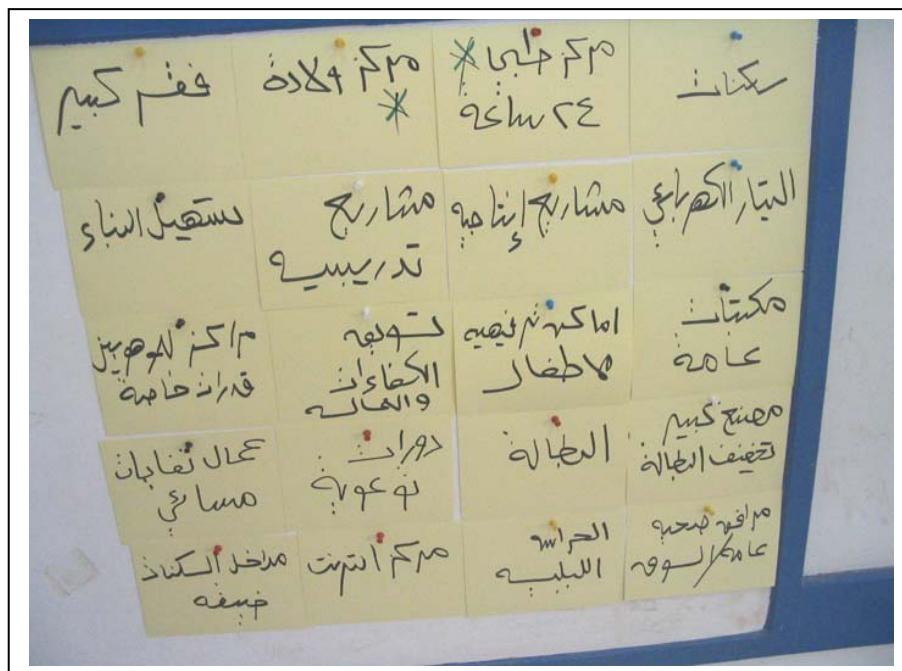 سكنات
مركز طبي
٢٤ ساعة
مركز ولادة
فقر كبير
التيار الكهربائي
مشاريع إنتاجية
مشاريع
تدريبية
تسهيل البناء
مكتبات
عامة
اماكن ترفيهية
للاطفال
تسويق
الكفاءات
والعمالة
مراكز للموهوبين
قدرات خاصة
مصنع كبير
تخفيف البطالة
البطالة
دورات
توعوية
عمال نفايات
مسائي
مرافق صحية
عامة/السوق
الحراسه
الليليه
مركز انترنت
مداخل السكنات
ضيقه